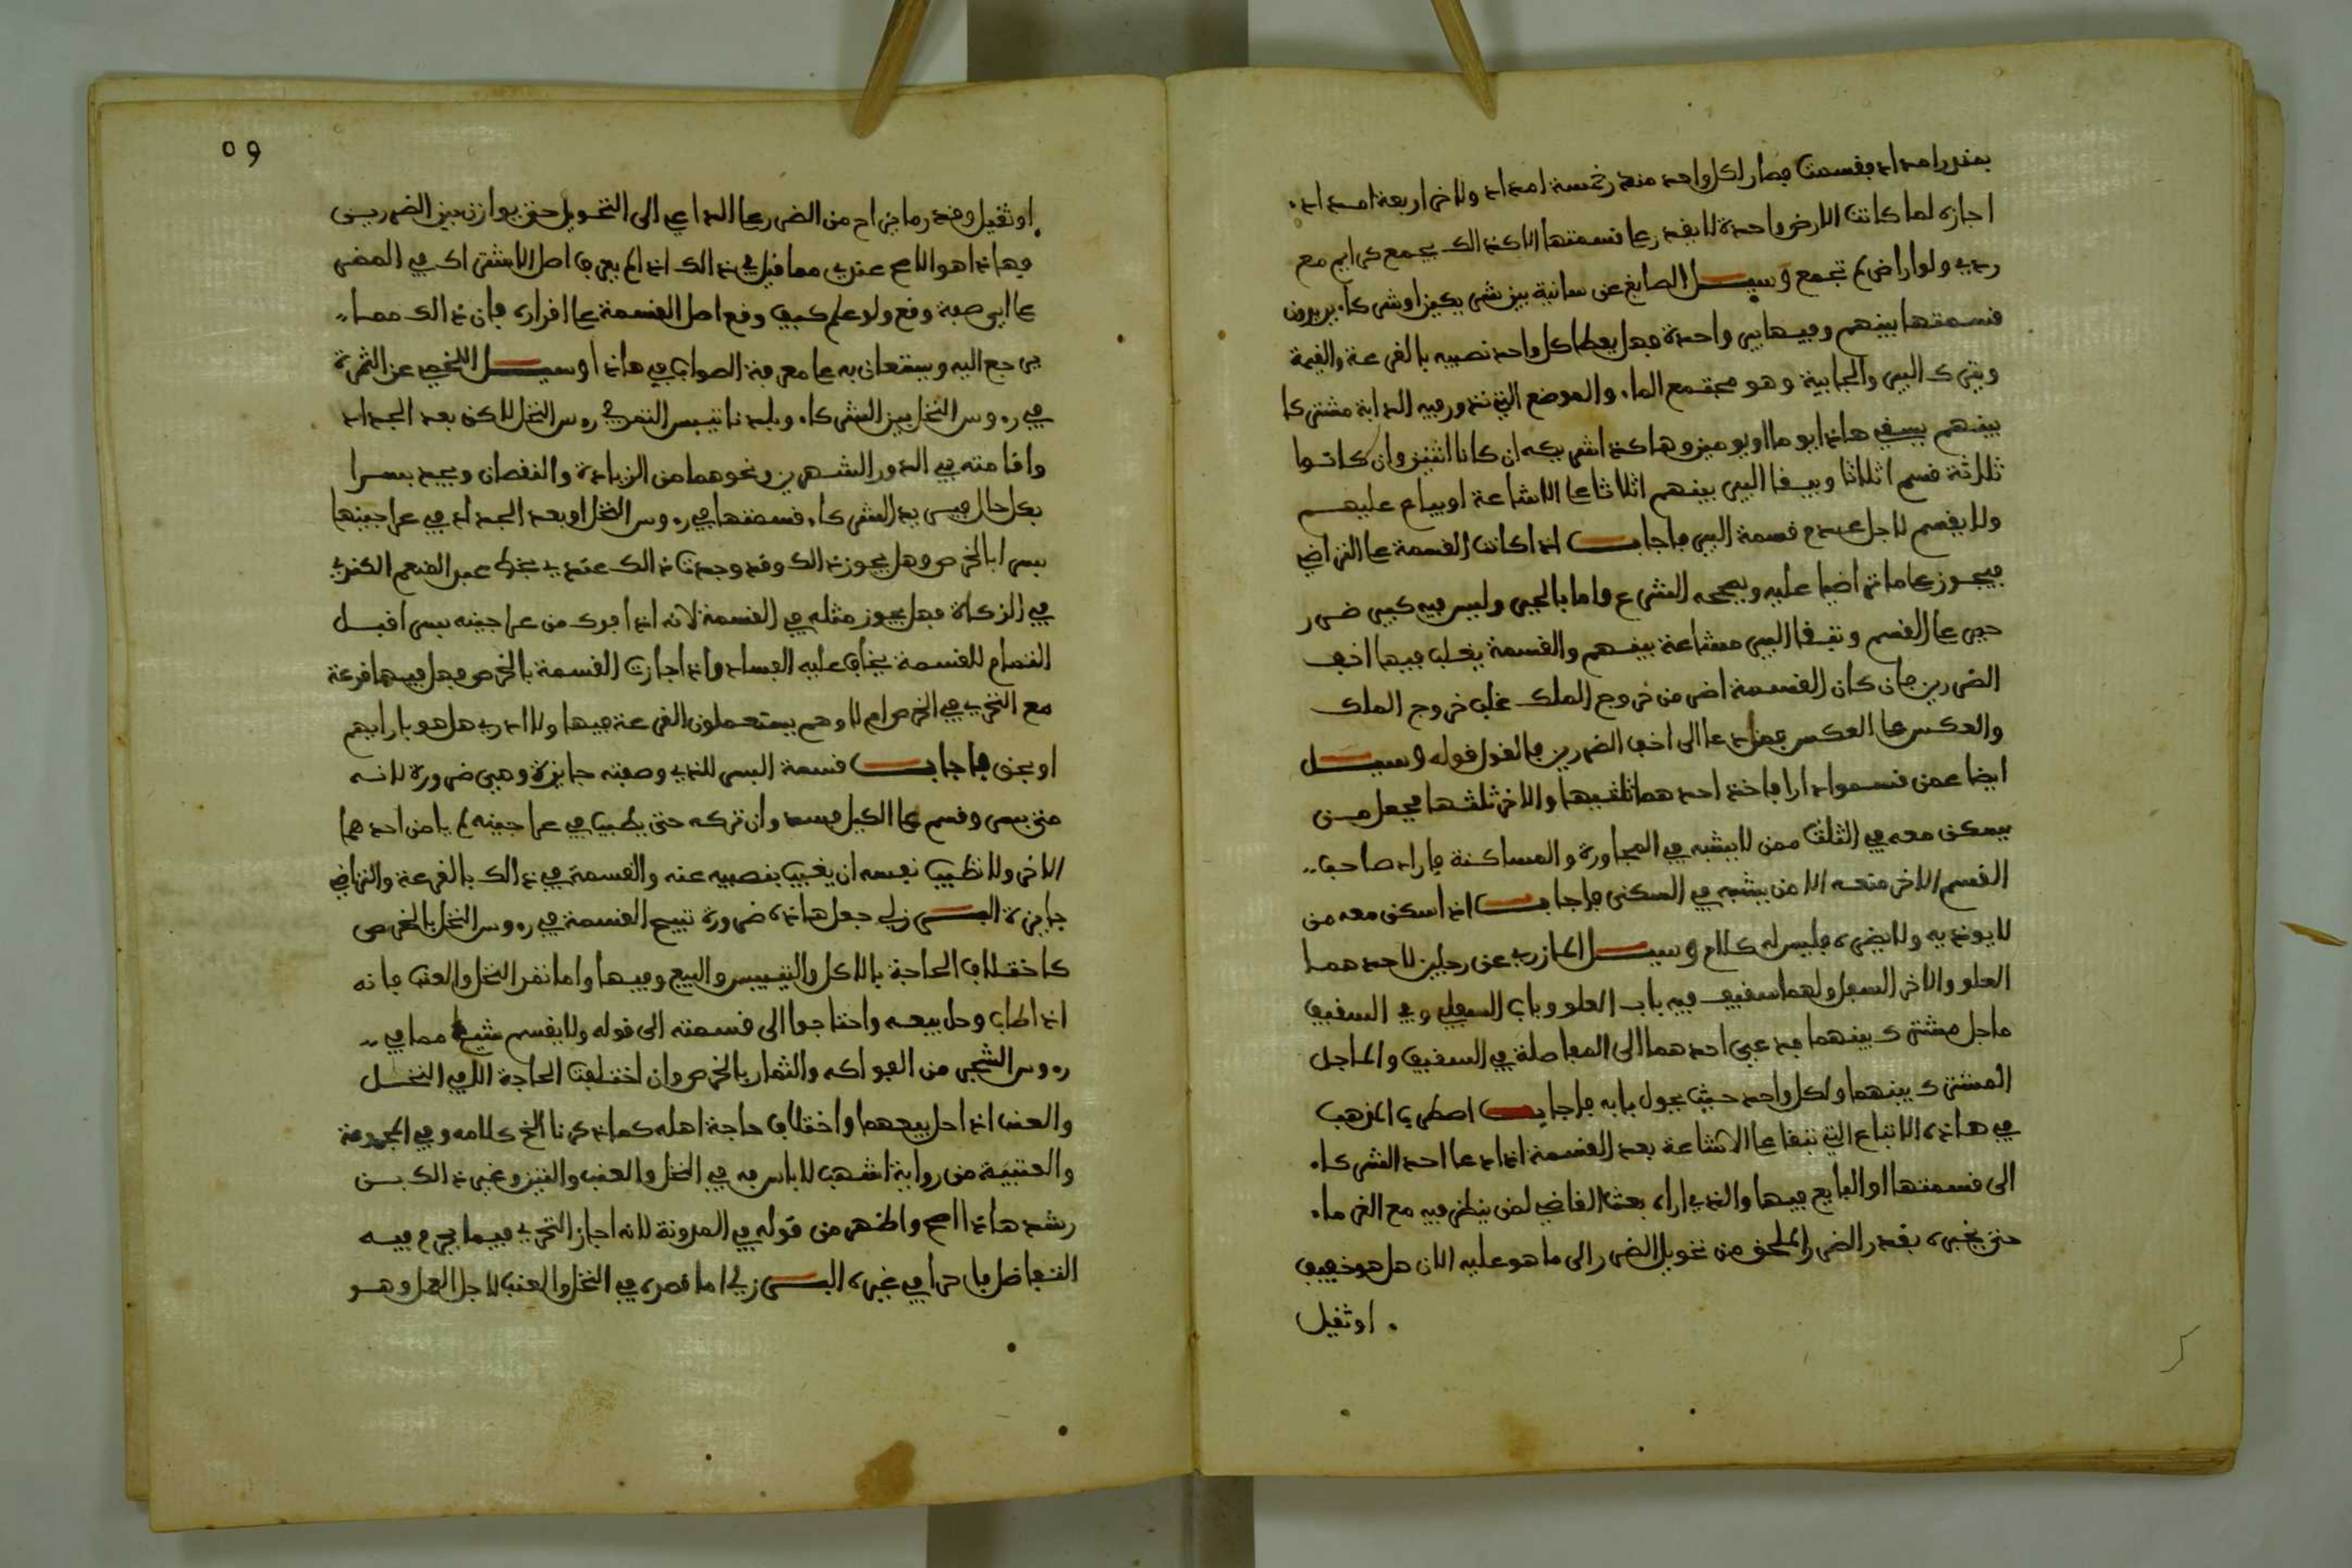 بعشر امداد فقسمت فصار لكل واحد منهم خمسة امداد وللاخر اربعة امداد
اجازه لما كانت الارض واحدة لا يقدر على قسمتها الا كذالك يجمع كرايم مع
ردي ولو اراضي لم تجمع وسيل الصايغ عن سانية بين شريكين او شركاء يريدون
قسمتها بينهم وفيها بير واحدة فهل يعطا كل واحد نصيبه بالقرعة والقيمة
ويترك البير والجابية وهو مجتمع الماء والموضع الذي تدور فيه الدابة مشتركا
بينهم يسقي هاذا يوما او يومين وهاكذا شريكه ان كانا اثنين وان كانوا
ثلاثة قسم اثلاثا ويبقا البير بينهم اثلاثا على الاشاعة او يباع عليهم
ولا يقسم لاجل عدم قسمة البير فاجاب اذا كانت القسمة على التراضي
فيجوز على ما تراضيا عليه ويصححه الشرع واما بالجبر وليس فيه كبير ضرر
جبر على القسم وتبقا البير مشاعة بينهم والقسمة يغلب فيها اخف
الضررين فان كان القسمة اضر من خروج الملك غلب خروج الملك
والعكس على العكس فمن دعا الى اخف الضررين فالقول قوله وسيل
ايضا عمن قسموا دارا فاخذ احدهما ثلثيها والاخر ثلثها فجعل من
يسكن معه في الثلث ممن لا يشبه في المجاورة والمساكنة فاراد صاحب
القسم الاخر منعه الا من يشبه في السكنى فاجاب اذا سكن معه من
لا يوذيه ولا يضره فليس له كلام وسيل المازري عن رجلين لاحدهما
العلو والاخر السفل ولهما سقيف فيه باب العلو وباب السفلي وفي السقيف
ماجل مشترك بينهما فدعى احدهما الى المفاصلة في السقيف والماجل
المشترك بينهما ولكل واحد حيث يحول بابه فاجاب اضطرب المذهب
في هاذه الاتباع التي تبقا على الاشاعة بعد القسمة اذا دعا احد الشركاء
الى قسمتها او البايع فيها والذي اراه بعث القاضي لمن ينظر فيه مع الغرماء
حتى يخبره بقدر الضرر الملحق من تحويل الضرر الى ما هو عليه الان هل هو خفيف
او ثقيل
٥٩
او ثقيل وقدر ما يزاح من الضرر على الداعي الى التحويل حتى يوازن بين الضررين
فهاذا هو الاصح عندي مما قيل في ذالك اذا لم يعرف اصل الاشتراك في الممر
على اي صفة وقع ولو علم كيف وقع اصل القسمة على اقراره فان ذالك مما
يرجع اليه ويستعان به على معرفة الصواب في هاذا وسيل اللخمي عن الثمرة
في روس النخل بين الشركاء وبلدنا تيبس التمر في روس النخل لاكن بعد الجداد
واقامته في الدور الشهرين ونحوهما من الزيادة والنقصان ويجد بسرا
بكل حال فيريد الشركاء قسمتها في روس النخل او بعد الجداد في عراجينها
بسرا بالخرص وهل يجوز ذالك وقد وجدت ذالك عندي بخط عبد المنعم الكندي
في الزكاة فهل يجوز مثله في القسمة لانه اذا فرك من عراجينه بسرا قبل
التمام للقسمة يخاف عليه الفساد واذا جازت القسمة بالخرص فهل فيها قرعة
مع التحري في الخرص ام لا وهم يستعملون القرعة فيها ولا ادري هل هو بارايهم
او بحق فاجاب قسمة البسر للذي وصفته جايزة وهي ضرورة لانه
متى يبس وقسم على الكيل فسد وان تركه حتى يطيب في عراجينه لم يامن احدهما
الاخر ولا تطيب نفسه ان يغيب بنصيبه عنه والقسمة في ذالك بالقرعة والتراضي
جايزة البرزلي جعل هاذه ضرورة تبيح القسمة في روس النخل بالخرص
كاختلاف الحاجة بالاكل والتيبيس والبيع وفيها واما تمر النخل والعنب فانه
اذا طاب وحل بيعه واحتاجوا الى قسمته الى قوله ولا يقسم شي مما في
روس الشجر من الفواكه والثمار بالخرص وان اختلفت الحاجة الا في النخل
والعنب اذا حل بيعهما واختلاف حاجة اهله كما ذكرنا الخ كلامه وفي المجموعة
والعتبية من رواية اشهب لا باس به في النخل والعنب والتين وغير ذالك بن
رشد هاذا اصح واظهر من قوله في المدونة لانه اجاز التحري فيما يحرم فيه
التفاضل فاحرا في غيره البرزلي اما قصره في النخل والعنب لاجل العمل وهو